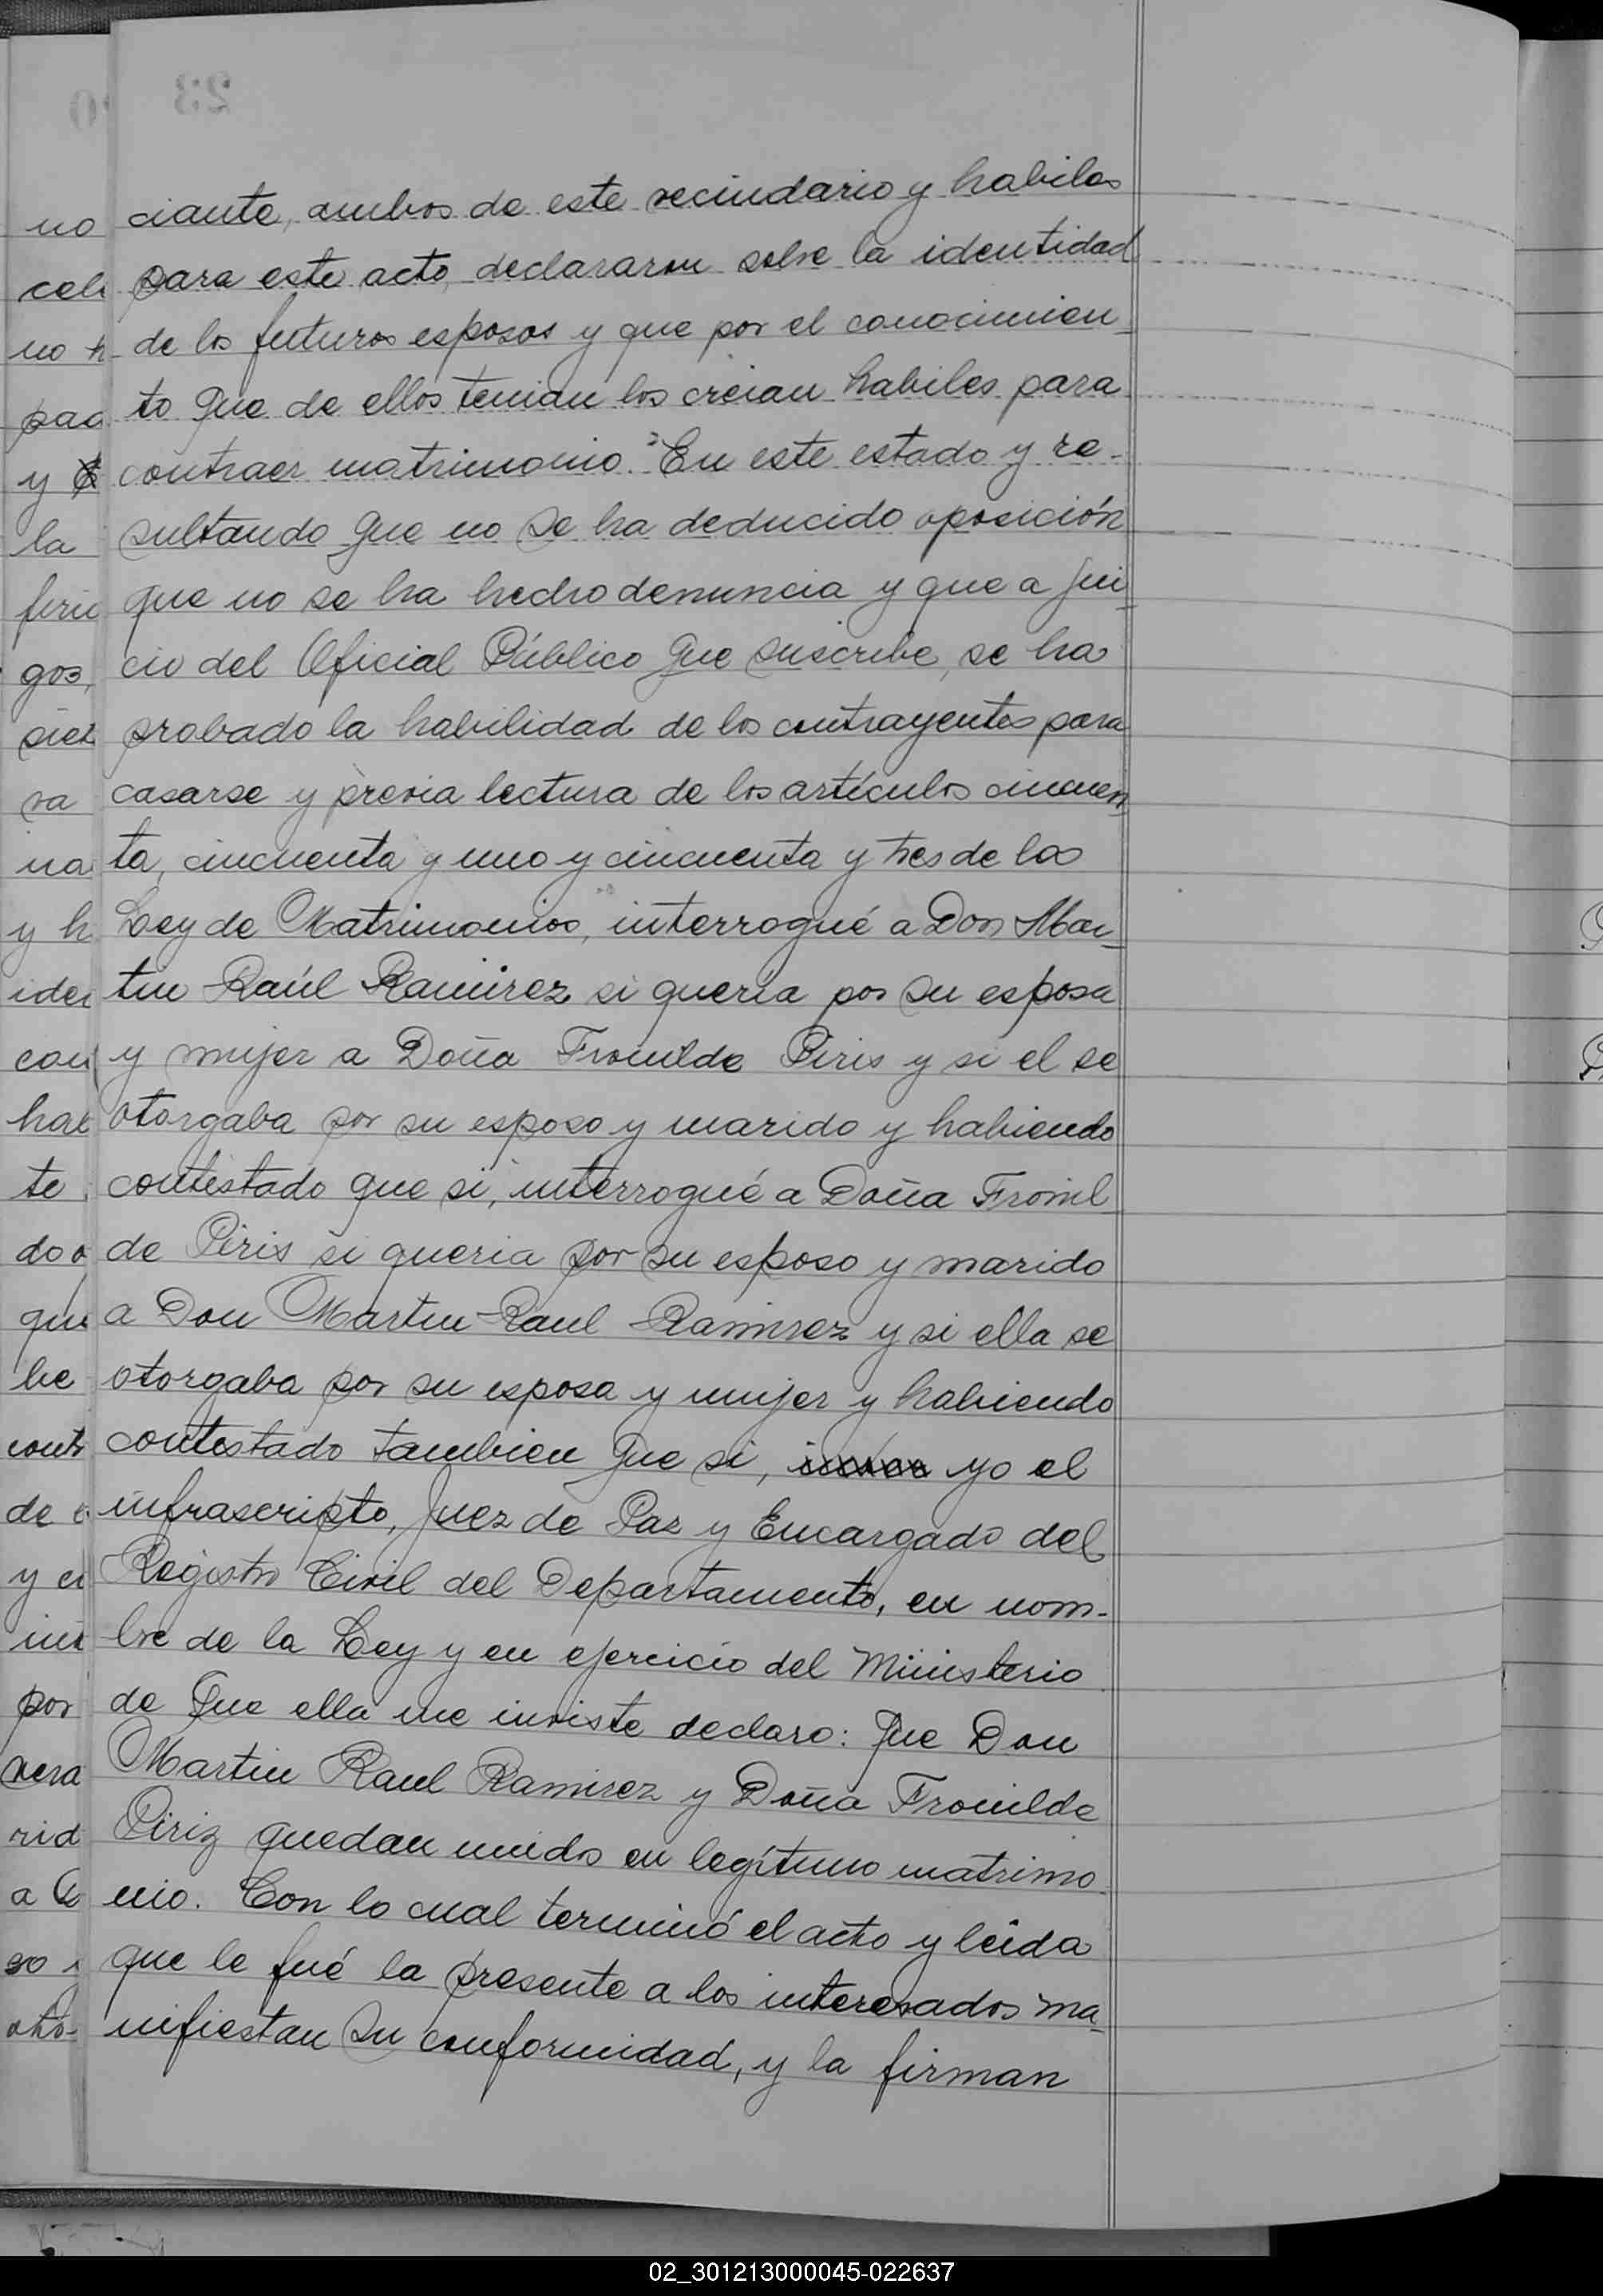 ciante, ambos de este vecindario y habiles
para este acto, declararon sobre la identidad
de los futuros esposos y que por el conocimien-
to que de ellos tenian los creian habiles para
contraer matrimonio. En este estado y re-
sultando que no se ha deducido oposición
que no se ha hecho denuncia y que a jui-
cio del Oficial Público que suscribe, se ha
probado la habilidad de los contrayentes para
casarse y previa lectura de los artículos cincuen-
ta, cincuenta y uno y cincuenta y tres de la
Ley de Matrimonios, interrogué a Don Mar-
tin Raúl Ramirez si quería por su esposa
y mujer a Doña Froilde Piris y si el se
otorgaba por su esposo y marido y habiendo
contestado que si, interrogué a Doña Froil
de Piris si queria por su esposo y marido
a Don Martin Raul Ramirez y si ella se
otorgaba por su esposa y mujer y habiendo
contestado tambien que si, yo el
infrascripto, Juez de Paz y Encargado del
Registro Civil del Departamento, en nom-
bre de la Ley y en ejercicio del Ministerio
de que ella me inviste declaro: que Don
Martin Raul Ramirez y Doña Froilde
Piriz quedan unidos en legítimo matrimo-
nio. Con lo cual terminó el acto y leída
que le fué la presente a los interesados ma-
nifiestan su conformidad, y la firman
02_301213000045-022637